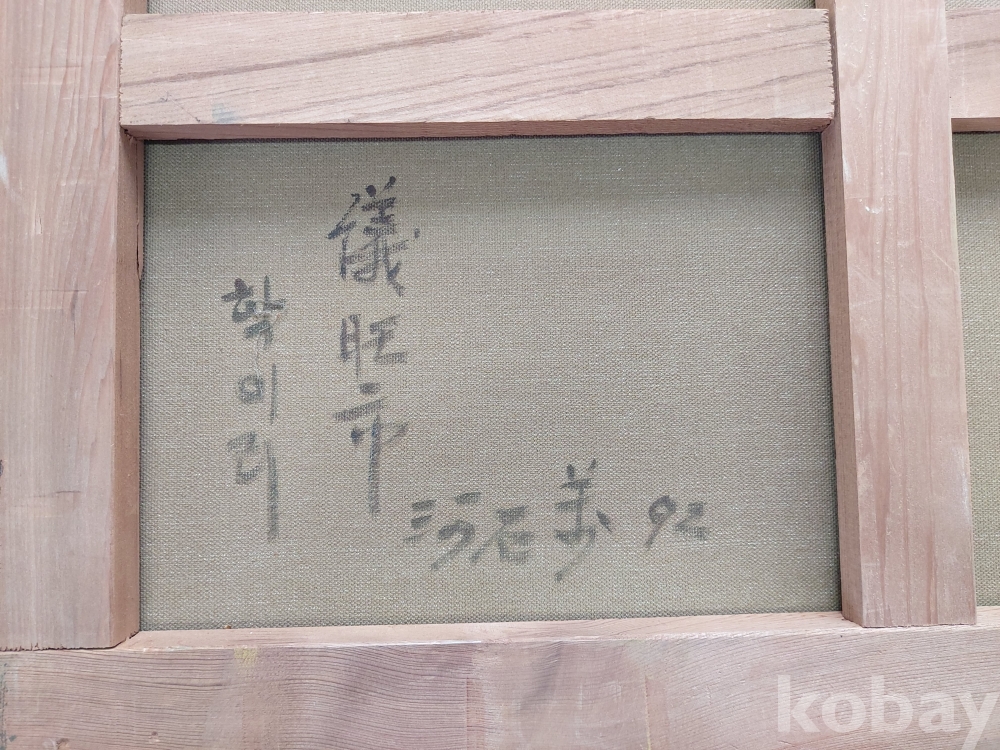 儀旺市
학이리
河石 92
kobay